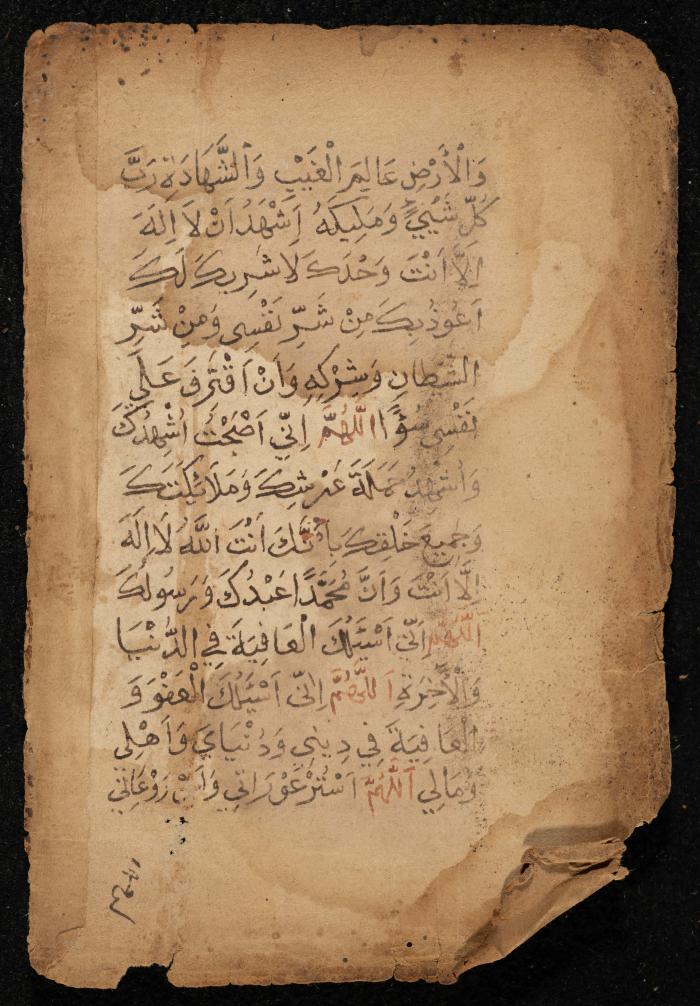 وَالْأَرْضِ عَالِمَ الْغَيْبِ وَالشَّهَادَةِ رَبَّ
كُلِّ شَيْئٍ وَمَلِيكَهُ اَشْهَدُ اَنْ لَا اِلٰهَ
اِلَّا اَنْتَ وَحْدَكَ لَا شَرِيكَ لَكَ
اَعُوذُ بِكَ مِنْ شَرِّ نَفْسِى وَمِنْ شَرِّ
الشَّيْطَانِ وَشِرْكِهِ وَاَنْ اَقْتَرِفَ عَلَى
نَفْسِى سُوْٓءًا اَللّٰهُمَّ اِنِّى اَصْبَحْتُ اُشْهِدُكَ
وَاُشْهِدُ حَمَلَةَ عَرْشِكَ وَمَلَائِكَتَكَ
وَجَمِيعَ خَلْقِكَ بِاَنَّكَ اَنْتَ اللّٰهُ لَا اِلٰهَ
اِلَّا اَنْتَ وَاَنَّ مُحَمَّدًا عَبْدُكَ وَرَسُولُكَ
اَللّٰهُمَّ اِنِّى اَسْئَلُكَ الْعَافِيَةَ فِى الدُّنْيَا
وَالْاٰخِرَةِ اَللّٰهُمَّ اِنِّى اَسْئَلُكَ الْعَفْوَ وَ
الْعَافِيَةَ فِى دِينِى وَدُنْيَاىَ وَاَهْلِى
وَمَالِى اَللّٰهُمَّ اسْتُرْ عَوْرَاتِى وَاٰمِنْ رَوْعَاتِى